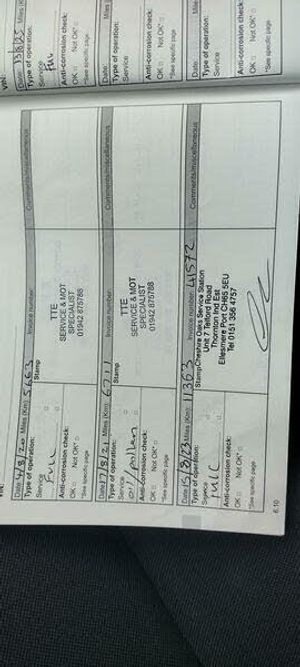 Date: 4/8/20 Miles (Km): 5663 Invoice number: Comments/miscellaneous
Type of operation: Stamp
Service
Full
TTE
SERVICE & MOT
SPECIALIST
01942 875788
Anti-corrosion check:
OK Not OK*
*See specific page
Date: 17/8/21 Miles (Km): 6711 Invoice number: Comments/miscellaneous
Type of operation: Stamp
Service
oil/pollen
TTE
SERVICE & MOT
SPECIALIST
01942 875788
Anti-corrosion check:
OK Not OK*
*See specific page
Date: 15/8/23 Miles (Km): 11363 Invoice number: 41572 Comments/miscellaneous
Type of operation: Stamp
Service
Full
Cheshire Oaks Service Station
Unit 7 Telford Road
Thornton Ind Est
Ellesmere Port CH65 5EU
Tel 0151 356 4757
Anti-corrosion check:
OK Not OK*
*See specific page
6.10
VIN:
Date: 13/8/25 Miles (K
Type of operation:
Service
Full
Anti-corrosion check:
OK Not OK*
*See specific page
Date: Miles
Type of operation:
Service
Anti-corrosion check:
OK Not OK*
*See specific page
Date: Mile
Type of operation:
Service
Anti-corrosion check:
OK Not OK*
*See specific page